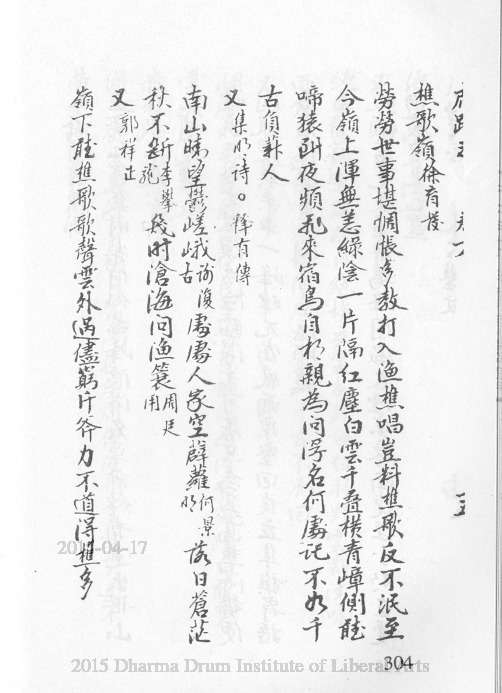 樵歌嶺徐育俊
勞勞世事堪惆悵漫教打入漁樵唱豈料樵歌反不泯至
今嶺上渾無恙綠陰一片隔紅塵白雲千叠橫青嶂側聽
啼猿到夜頻飛來宿鳥自相親為問浮名何處託不如千
古負薪人
又集明詩。釋有傳
南山晴望鬱嵯峨謝復處處人家空薜蘿何景明落日蒼茫
秋不斷李攀龍幾時滄海問漁簑周廷用
又郭祥正
嶺下聽樵歌歌聲雲外過儘窮斤斧力不道得樵多
2019-04-17
304
2015 Dharma Drum Institute of Liberal Arts